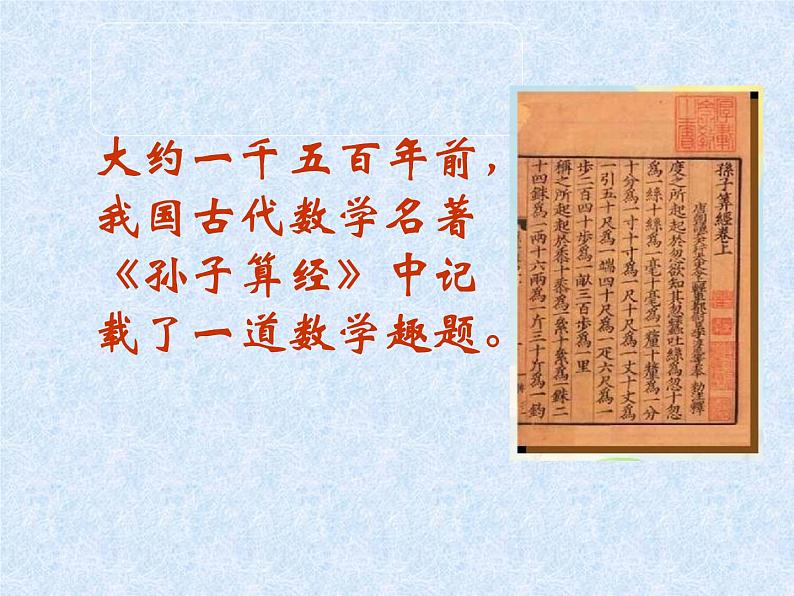 大约一千五百年前，
我国古代数学名著
《孙子算经》中记
载了一道数学趣题。
孫子算經卷上
度之所起起於忽欲知其忽蠶吐絲為忽十忽
為一絲十絲為一毫十毫為一釐十釐為一分
十分為一寸十寸為一尺十尺為一丈十丈為
一引五十尺為一端四十尺為一疋六尺為一
步二百四十步為一畝三百步為一里
稱之所起起於黍十黍為一絫十絫為一銖二
十四銖為一兩十六兩為一斤三十斤為一鈞